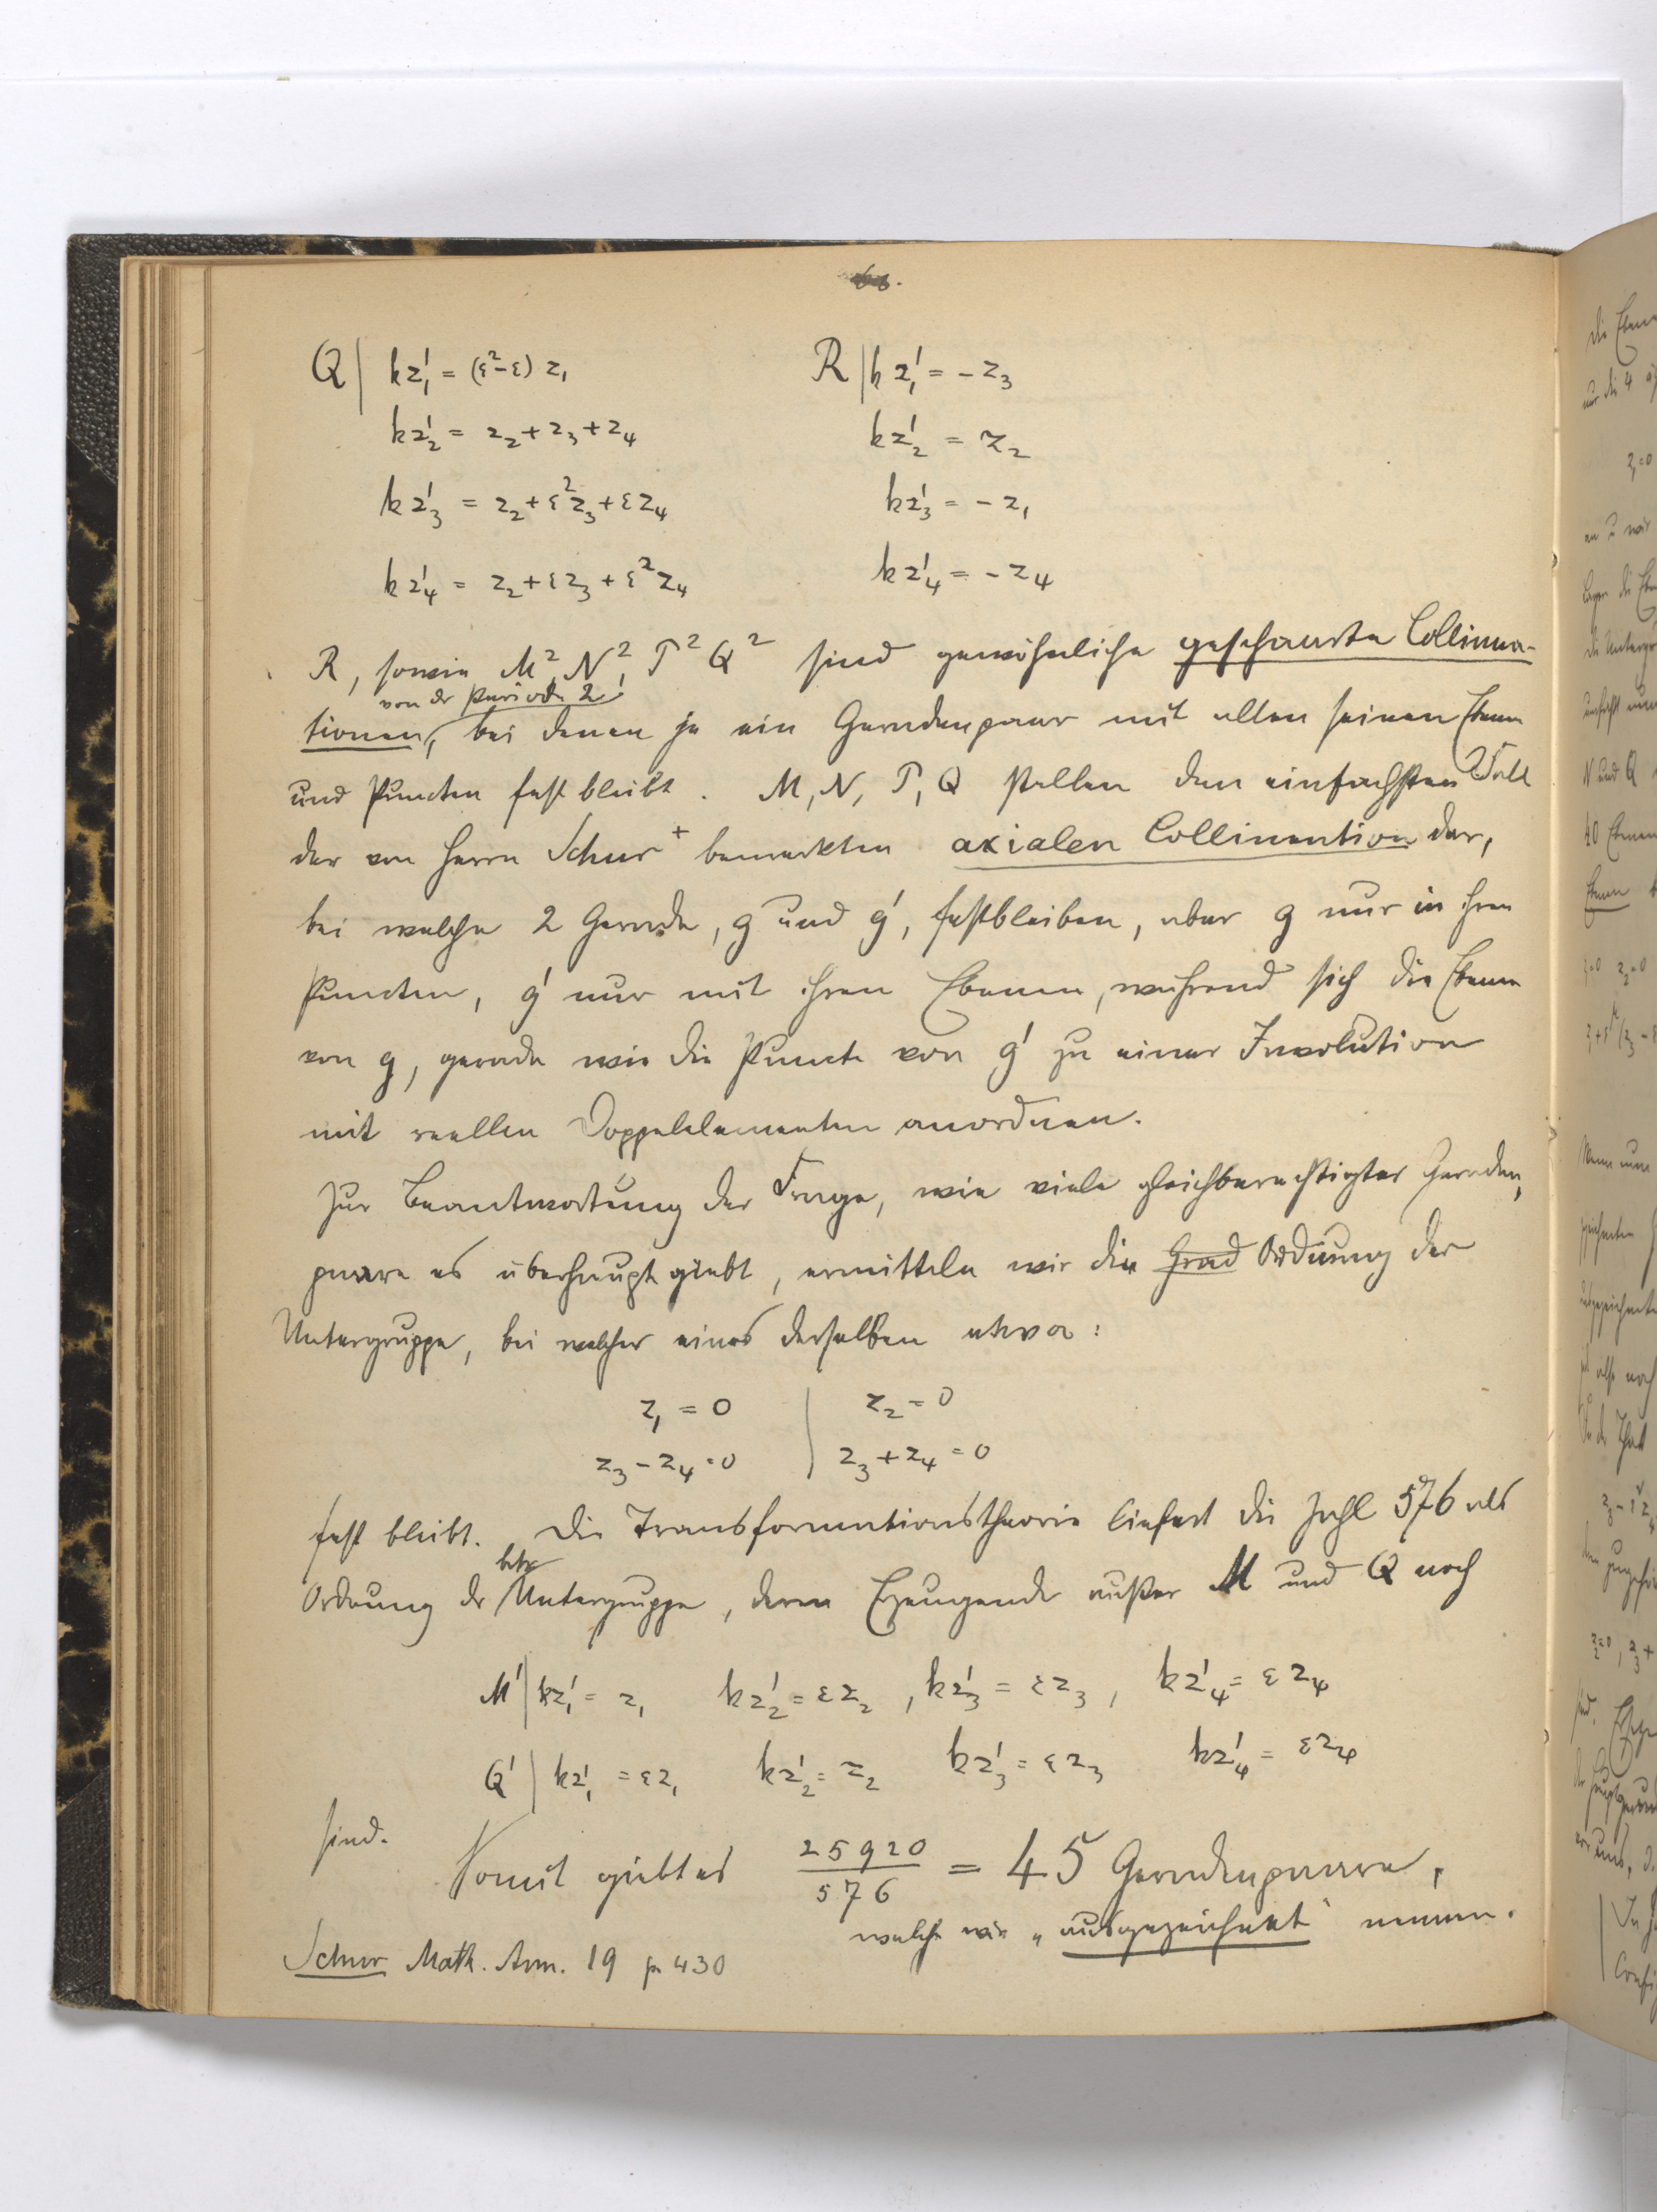 Q | kz₁' = (ε²-ε) z₁
kz₂' = z₂+z₃+z₄
kz₃' = z₂+ε²z₃+εz₄
kz₄' = z₂+εz₃+ε²z₄
R | kz₁' = -z₃
kz₂' = z₂
kz₃' = -z₁
kz₄' = -z₄
R, sowie M², N², T² Q² sind gewöhnliche geschaarte Collinea-
von der Periode 2
tionen, bei denen je ein Geradenpaar mit allen seinen Ebenen
und Puncten fest bleibt. M, N, T, Q stellen den einfachsten Fall
der von Herrn Schur + bemerkten axialen Collineation dar,
bei welcher 2 Gerade, g und g', festbleiben, aber g nur in ihren
Puncten, g' nur mit ihren Ebenen, während sich die Ebenen
von g, gerade wie die Puncte von g' zu einer Involution
mit reellen Doppelelementen anordnen.
Zur Beantwortung der Frage, wie viele gleichberechtigter Geraden,
paare es überhaupt giebt, ermitteln wir die Grad Ordnung der
Untergruppe, bei welcher eines derselben etwa:
z₁ = 0 | z₂ = 0
z₃ - z₄ = 0 | z₃ + z₄ = 0
fest bleibt. Die Transformationstheorie liefert die Zahl 576 als
Ordnung der Untergruppe, deren Erzeugende außer M und Q noch
M' | kz₁' = z₁ kz₂' = εz₂, kz₃' = εz₃, kz₄' = εz₄
Q' | kz₁' = εz₁ kz₂' = z₂ kz₃' = εz₃ kz₄' = εz₄
sind.
Somit giebt es 25920/576 = 45 Geradenpaare,
welche wir „ausgezeichnet" nennen.
Schur Math. Ann. 19 p 430